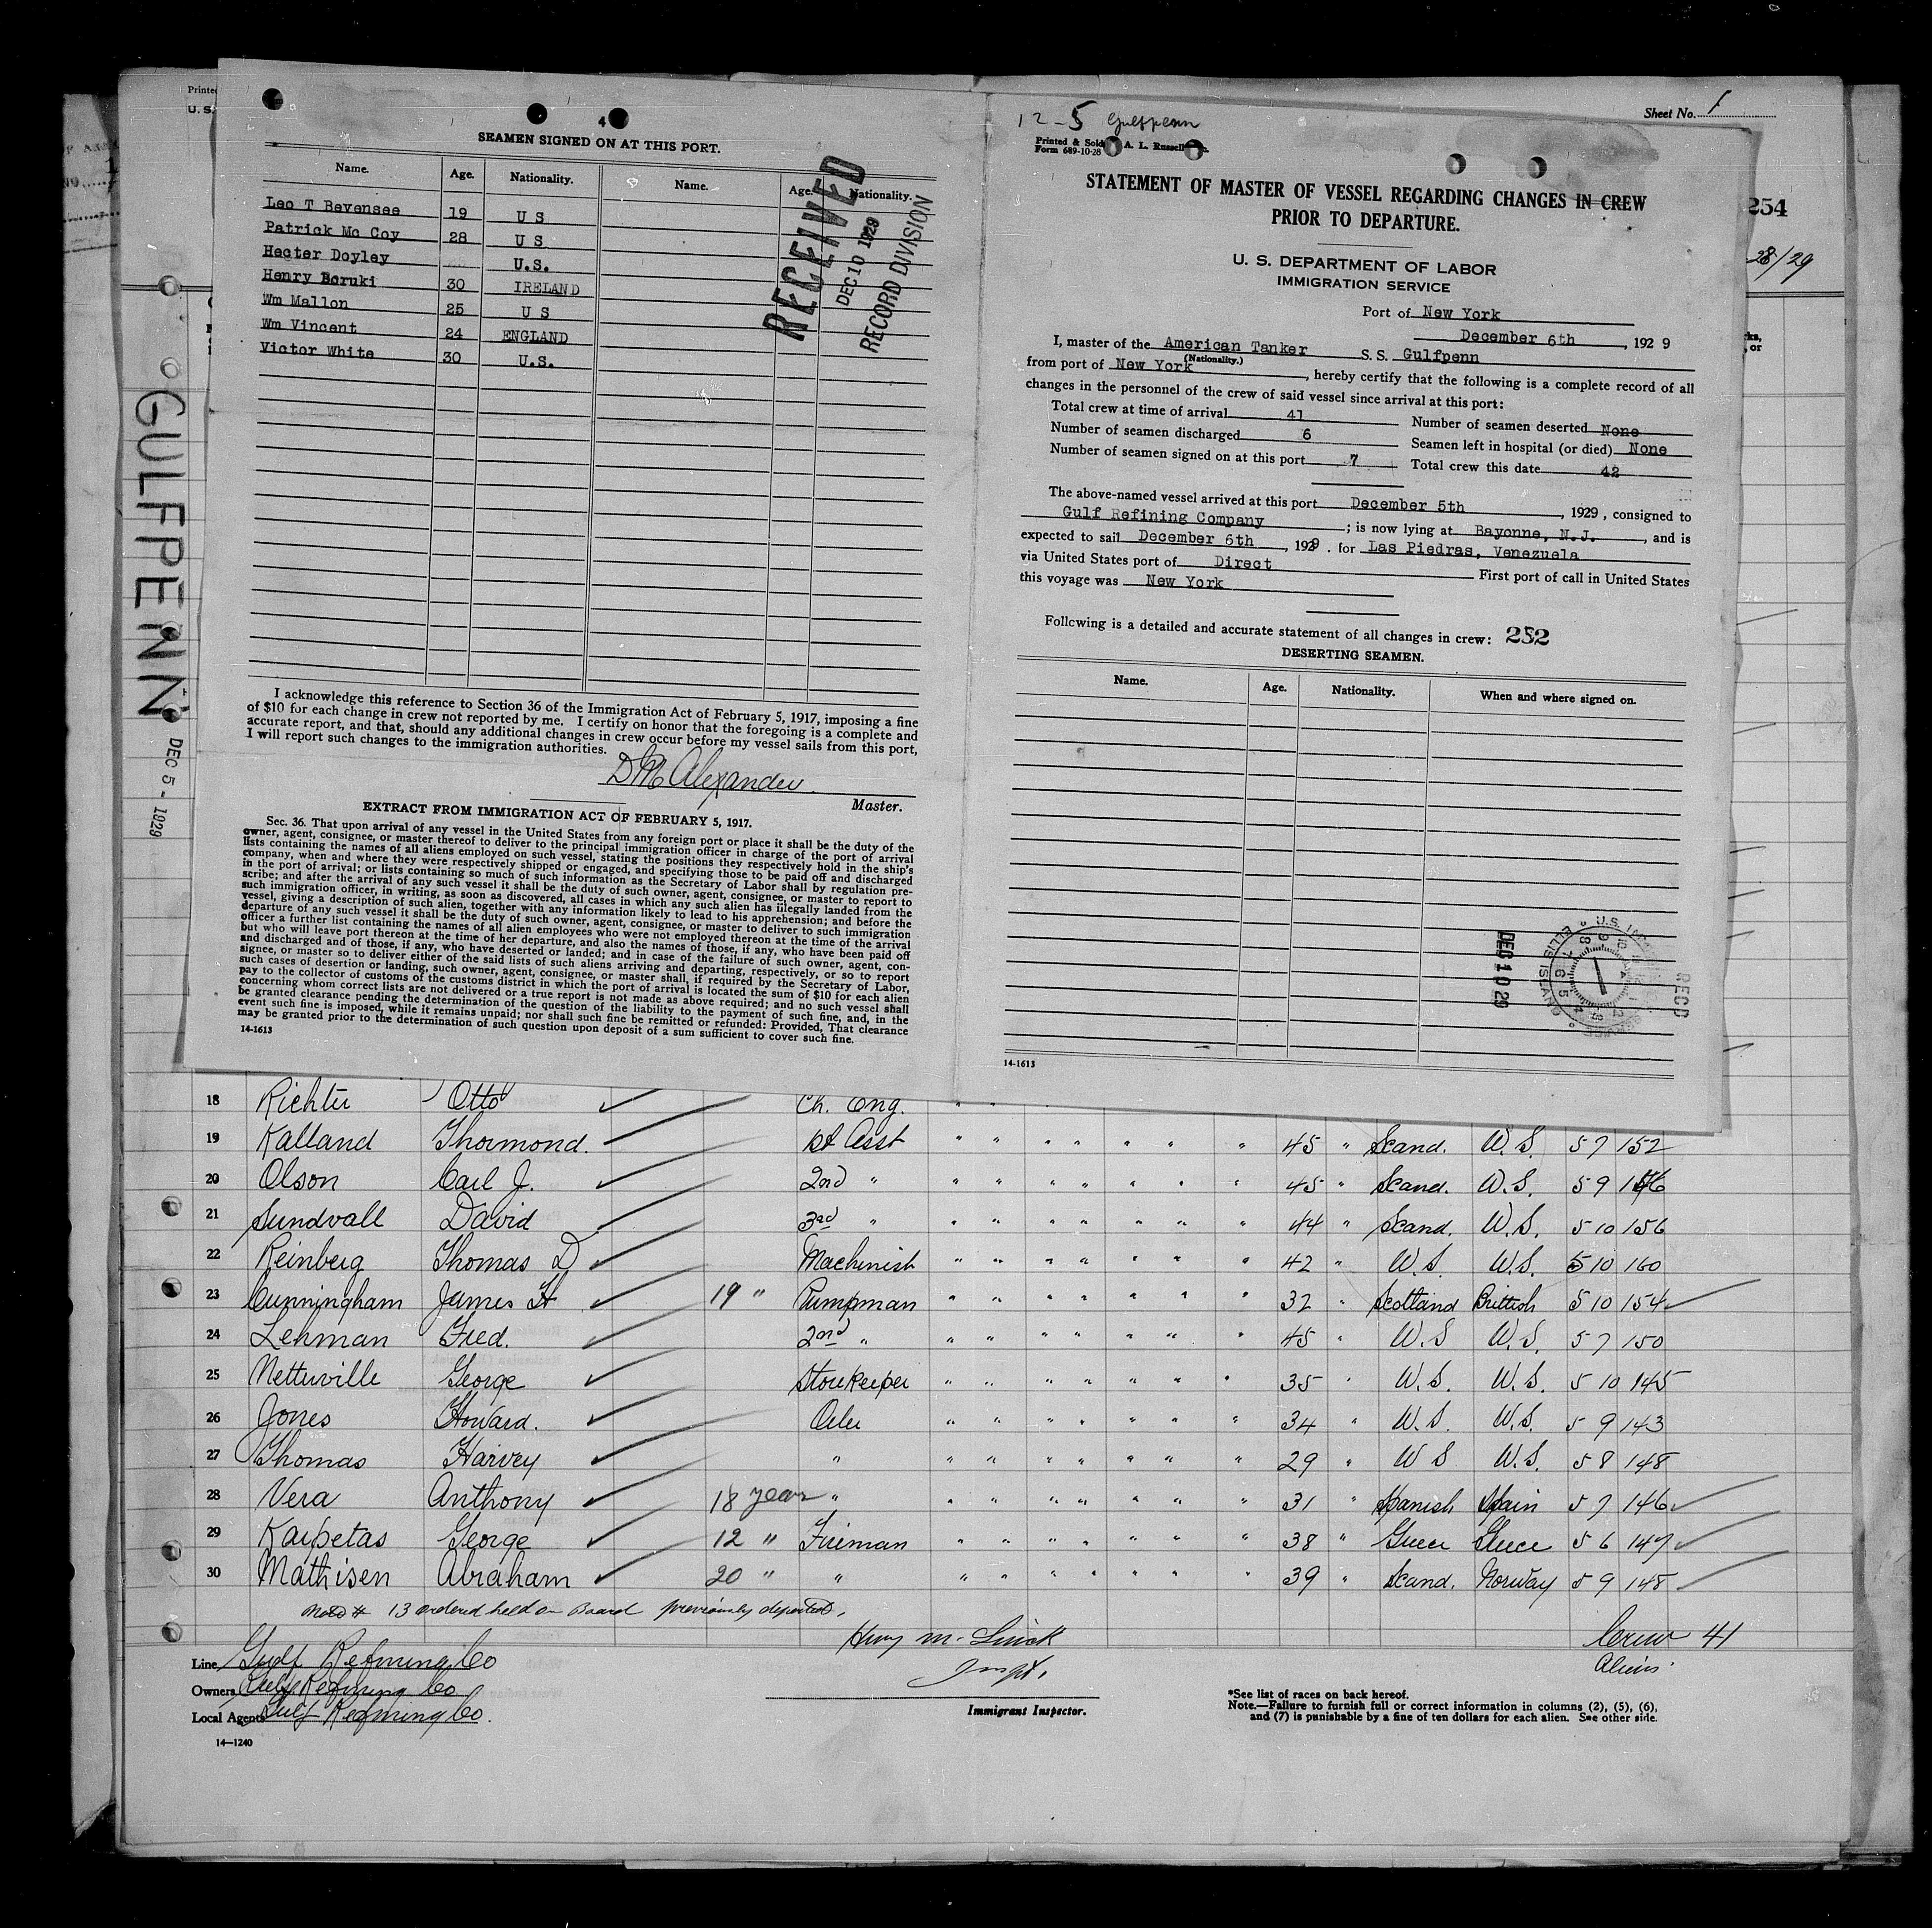 Printed
U. S.
Sheet No. 1
254
28/29
GULFPENN
DEC 5 - 1929
4
SEAMEN SIGNED ON AT THIS PORT.
Name. Age. Nationality. Name. Age. Nationality.
Leo T Bevensee 19 U S
Patrick Mc Coy 28 U S
Hecter Doyley U.S.
Henry Boruki 30 IRELAND
Wm Mallon 25 U S
Wm Vincent 24 ENGLAND
Victor White 30 U.S.
RECEIVED
DEC 10 1929
RECORD DIVISION
I acknowledge this reference to Section 36 of the Immigration Act of February 5, 1917, imposing a fine
of $10 for each change in crew not reported by me. I certify on honor that the foregoing is a complete and
accurate report, and that, should any additional changes in crew occur before my vessel sails from this port,
I will report such changes to the immigration authorities.
D M Alexander
Master.
EXTRACT FROM IMMIGRATION ACT OF FEBRUARY 5, 1917.
Sec. 36. That upon arrival of any vessel in the United States from any foreign port or place it shall be the duty of the
owner, agent, consignee, or master thereof to deliver to the principal immigration officer in charge of the port of arrival
lists containing the names of all aliens employed on such vessel, stating the positions they respectively hold in the ship's
company, when and where they were respectively shipped or engaged, and specifying those to be paid off and discharged
in the port of arrival; or lists containing so much of such information as the Secretary of Labor shall by regulation pre-
scribe; and after the arrival of any such vessel it shall be the duty of such owner, agent, consignee, or master to report to
such immigration officer, in writing, as soon as discovered, all cases in which any such alien has illegally landed from the
vessel, giving a description of such alien, together with any information likely to lead to his apprehension; and before the
departure of any such vessel it shall be the duty of such owner, agent, consignee, or master to deliver to such immigration
officer a further list containing the names of all alien employees who were not employed thereon at the time of the arrival
but who will leave port thereon at the time of her departure, and also the names of those, if any, who have been paid off
and discharged and of those, if any, who have deserted or landed; and in case of the failure of such owner, agent, con-
signee, or master so to deliver either of the said lists of such aliens arriving and departing, respectively, or so to report
such cases of desertion or landing, such owner, agent, consignee, or master shall, if required by the Secretary of Labor,
pay to the collector of customs of the customs district in which the port of arrival is located the sum of $10 for each alien
concerning whom correct lists are not delivered or a true report is not made as above required; and no such vessel shall
be granted clearance pending the determination of the question of the liability to the payment of such fine, and, in the
event such fine is imposed, while it remains unpaid; nor shall such fine be remitted or refunded: Provided, That clearance
may be granted prior to the determination of such question upon deposit of a sum sufficient to cover such fine.
14-1613
12-5 Gulfpenn
Printed & Sold A. L. Russell
Form 689-10-28
STATEMENT OF MASTER OF VESSEL REGARDING CHANGES IN CREW
PRIOR TO DEPARTURE.
U. S. DEPARTMENT OF LABOR
IMMIGRATION SERVICE
Port of New York
December 6th, 1929
I, master of the American Tanker S. S. Gulfpenn
(Nationality.)
from port of New York, hereby certify that the following is a complete record of all
changes in the personnel of the crew of said vessel since arrival at this port:
Total crew at time of arrival 41 Number of seamen deserted None
Number of seamen discharged 6 Seamen left in hospital (or died) None
Number of seamen signed on at this port 7 Total crew this date 42
The above-named vessel arrived at this port December 5th, 1929, consigned to
Gulf Refining Company; is now lying at Bayonne, N.J., and is
expected to sail December 6th, 1929. for Las Piedras, Venezuela
via United States port of Direct First port of call in United States
this voyage was New York
Following is a detailed and accurate statement of all changes in crew: 252
DESERTING SEAMEN.
Name. Age. Nationality. When and where signed on.
DEC 10 29
ELLIS ISLAND
RECD
14-1613
18 Richter Otto Ch. Eng.
19 Kalland Thormond. 1st Asst " " " " " " " 45 " Scand. U.S. 5 7 152
20 Olson Carl J. 2nd " " " " " " " " 45 " Scand. U.S. 5 9 156
21 Sundvall David 3rd " " " " " " " " 44 " Scand. U.S. 5 10 156
22 Reinberg Thomas D Machinist " " " " " " " 42 " U.S. U.S. 5 10 160
23 Cunningham James H 19 " Pumpman " " " " " " " 32 " Scotland British 5 10 154
24 Lehman Fred. 2nd " " " " " " " " 45 " U.S U.S. 5 7 150
25 Netterville George Storekeeper " " " " " " " 35 " U.S. U.S. 5 10 145
26 Jones Howard. Oiler " " " " " " " 34 " U.S. U.S. 5 9 143
27 Thomas Harvey " " " " " " " " 29 " U S U.S. 5 8 148
28 Vera Anthony 18 years " " " " " " " " 31 " Spanish Spain 5 7 146
29 Karpetas George 12 " Fireman " " " " " " " 38 " Greece Greece 5 6 147
30 Mathisen Abraham 20 " " " " " " " " " 39 " Scand. Norway 5 9 148
Note # 13 ordered held on Board previously deported.
Line Gulf Refining Co
Owners Gulf Refining Co
Local Agents Gulf Refining Co.
14—1240
Inspt.
Immigrant Inspector.
Crew 41
Aliens
*See list of races on back hereof.
Note.—Failure to furnish full or correct information in columns (2), (5), (6),
and (7) is punishable by a fine of ten dollars for each alien. See other side.